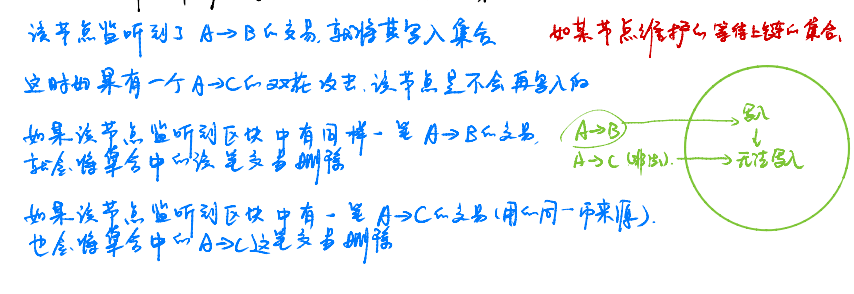 该节点监听到了 A→B的交易,就将其写入集合
如某节点维护的等待上链的集合,
这时如果有一个A→C的双花攻击,该节点是不会再写入的
如果该节点监听到区块中有同样一笔 A→B的交易,
就会将集合中的该笔交易删除
A→B
写入
A→C
无法写入
如果该节点监听到区块中有一笔A→C的交易(用的同一币来源),
也会将集合中的A→C这笔交易删除